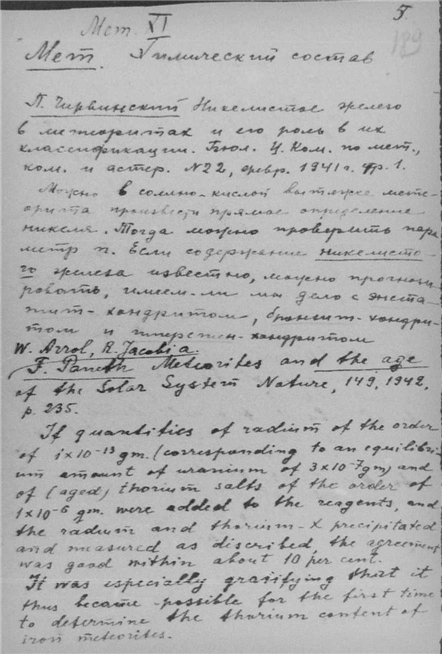 5
Мет. XI
179
Мет. Химический состав
П. Чирвинский Никелистое железо
в метеоритах и его роль в их
классификации. Бюл. Ц. Ком. по мет.,
ком. и астер. N22, февр. 1941 г. стр. 1.
Можно в соляно-кислой вытяжке мете-
орита произвести прямое определение
никеля. Тогда можно проверить пара-
метр n. Если содержание никелисто-
го железа известно, можно прогнози-
ровать, имеем-ли мы дело с энста-
тит-хондритом, бронзит-хондри-
том и гиперстен-хондритом
W. Arrol, R. Jacobi a.
F. Paneth Meteorites and the age
of the Solar System Nature, 149, 1942,
p. 235.
If quantities of radium of the order
of 1×10-13 gm. (corresponding to an equilibri-
um amount of uranium of 3×10-7 gm) and
of (aged) thorium salts of the order of
1×10-6 gm. were added to the reagents, and
the radium and thorium-X precipitated
and measured as discribed the agreement
was good within about 10 per cent.
It was especially gratifying that it
thus became possible for the first time
to determine the thorium content of
iron meteorites.